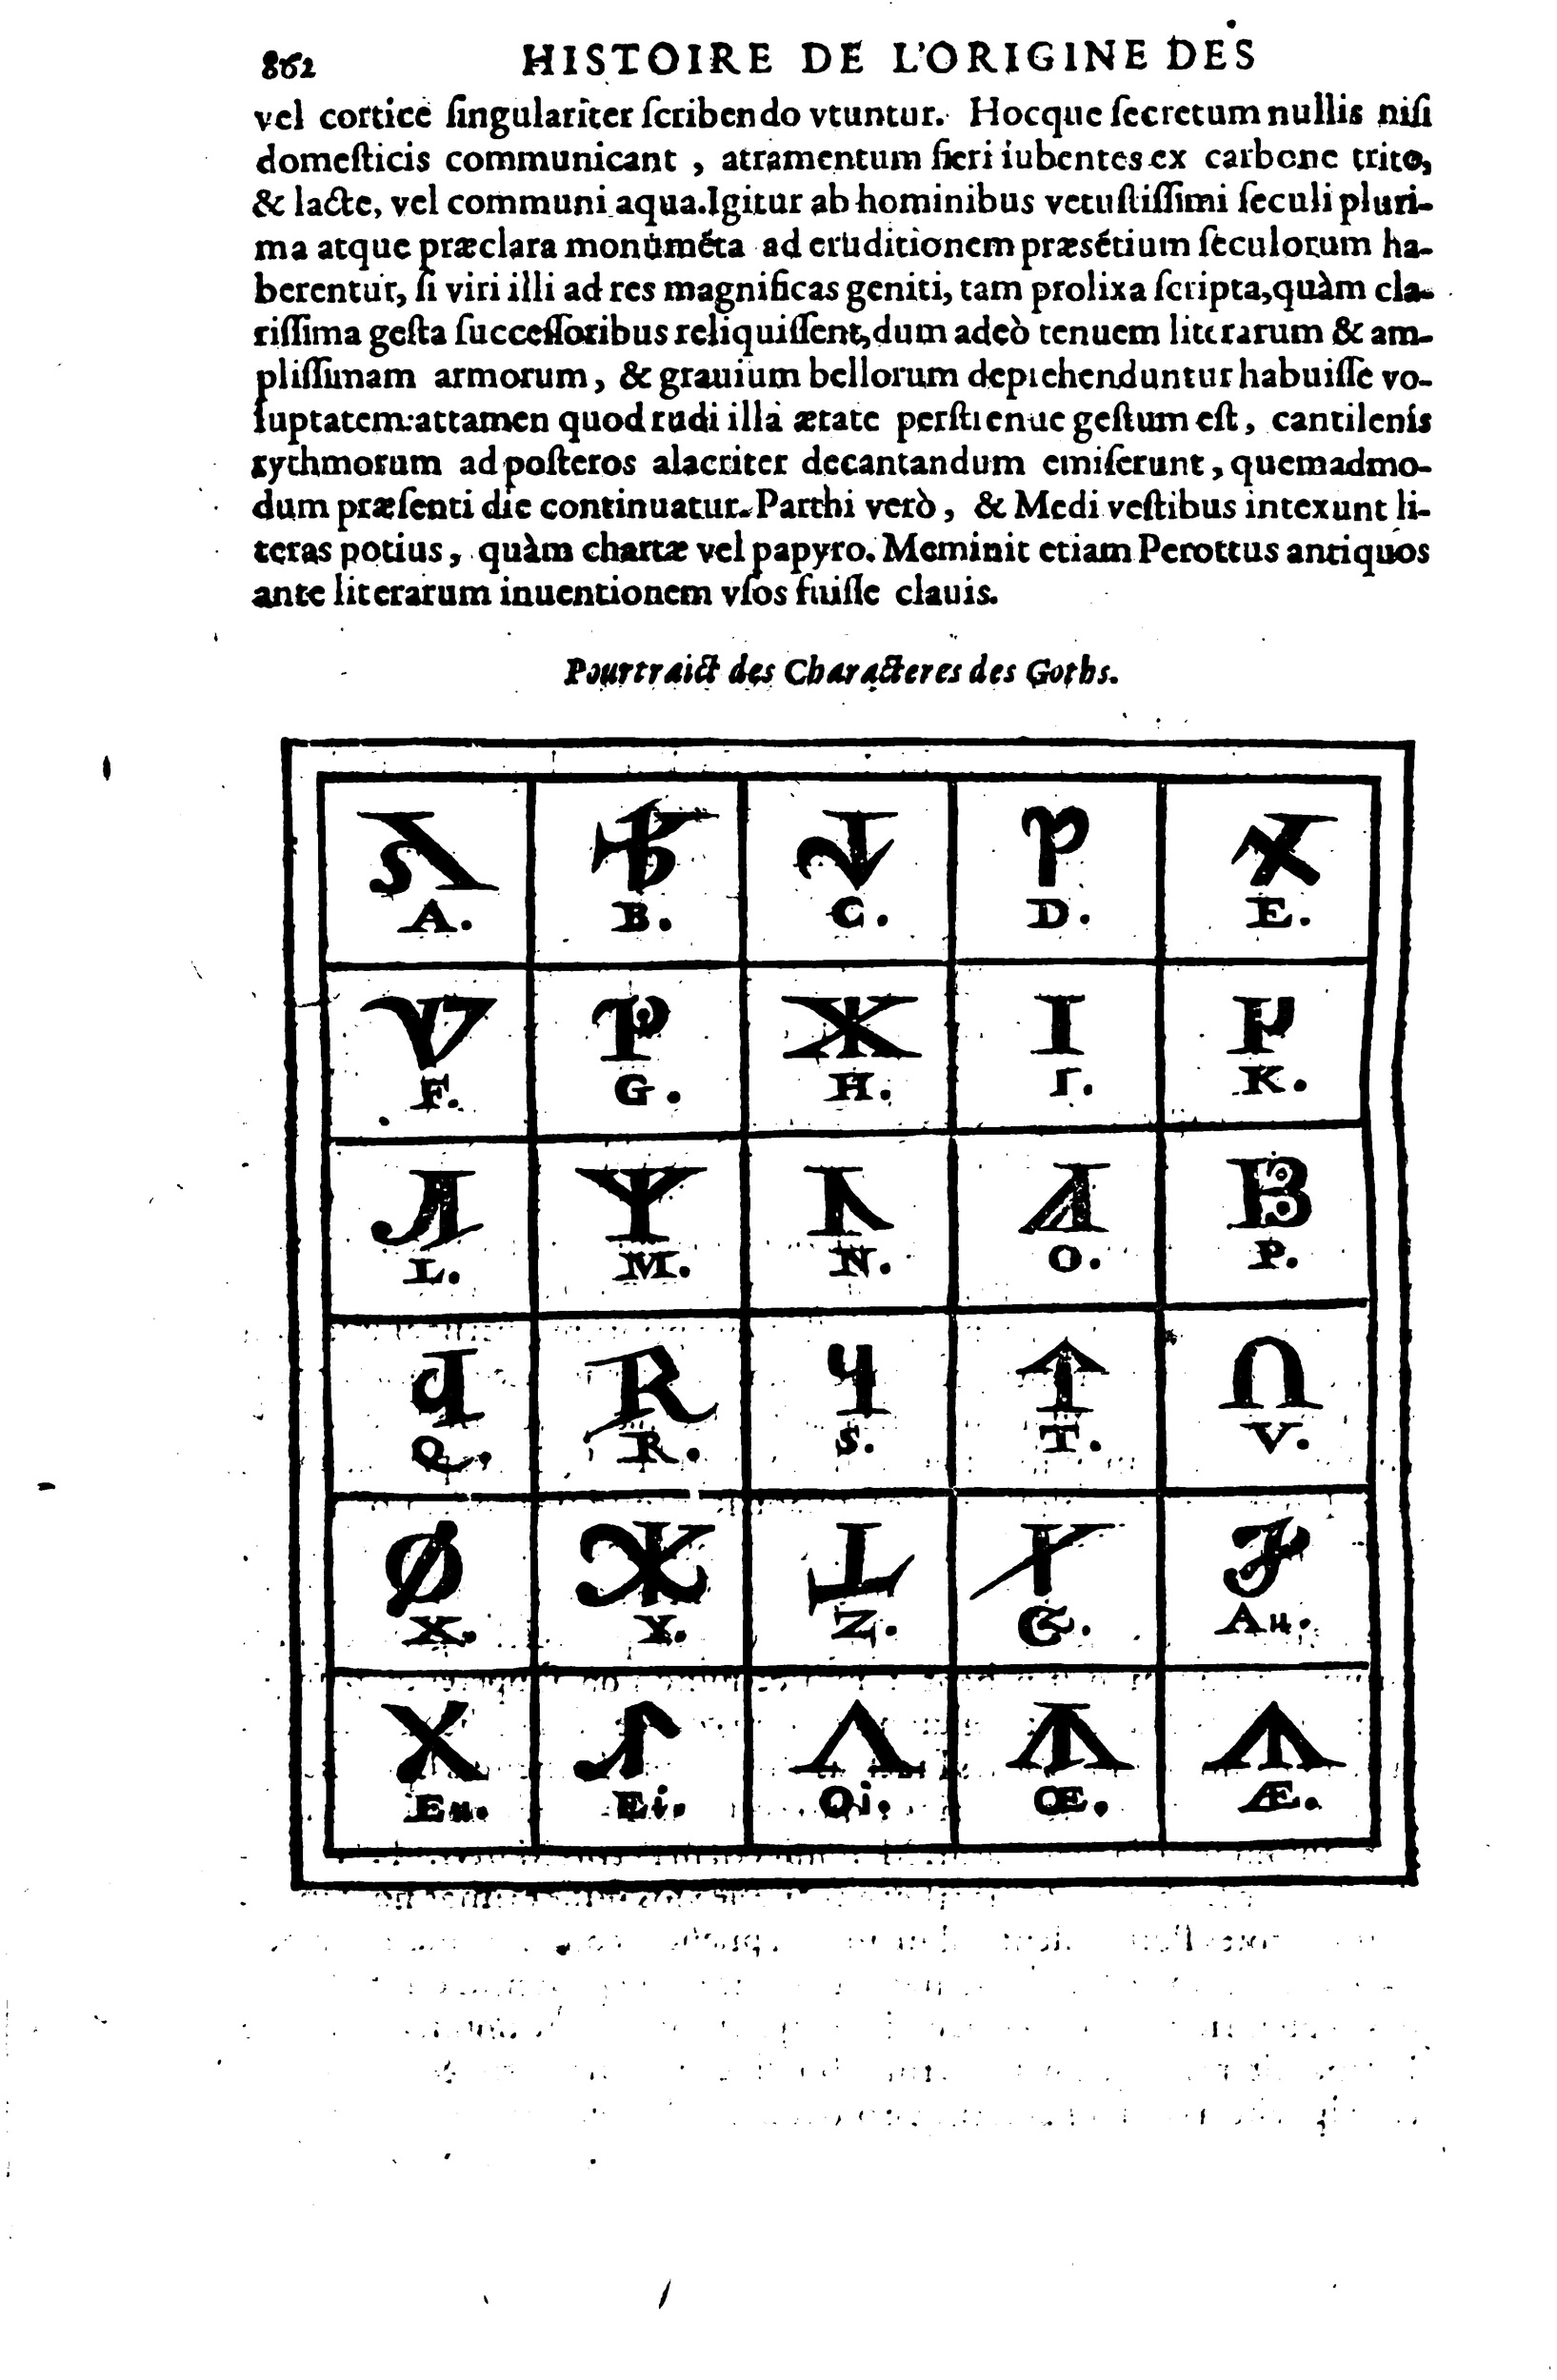 862 HISTOIRE DE L'ORIGINE DES
vel cortice ſingulariter ſcribendo vtuntur. Hocque ſecretum nullis niſi
domeſticis communicant, atramentum fieri iubentes ex carbone trito,
& lacte, vel communi aqua. Igitur ab hominibus vetuſtiſſimi ſeculi pluri-
ma atque præclara monumẽta ad eruditionem præsẽtium ſeculorum ha-
berentur, ſi viri illi ad res magnificas geniti, tam prolixa ſcripta, quàm cla-
riſſima geſta ſucceſſoribus reliquiſſent, dum adeò tenuem literarum & am-
pliſſimam armorum, & grauium bellorum deprehenduntur habuiſſe vo-
luptatem: attamen quod rudi illa ætate perſtrenue geſtum eſt, cantilenis
rythmorum ad poſteros alacriter decantandum emiſerunt, quemadmo-
dum præſenti die continuatur. Parthi verò, & Medi veſtibus intexunt li-
teras potius, quàm chartæ vel papyro. Meminit etiam Perottus antiquos
ante literarum inuentionem vſos fuiſſe clauis.
Pourtraict des Characteres des Goths.
A. B. C. D. E.
F. G. H. I. K.
L. M. N. O. P.
Q. R. S. T. V.
X. Y. Z. &. Au.
Eu. Ei. Oi. Œ. Æ.